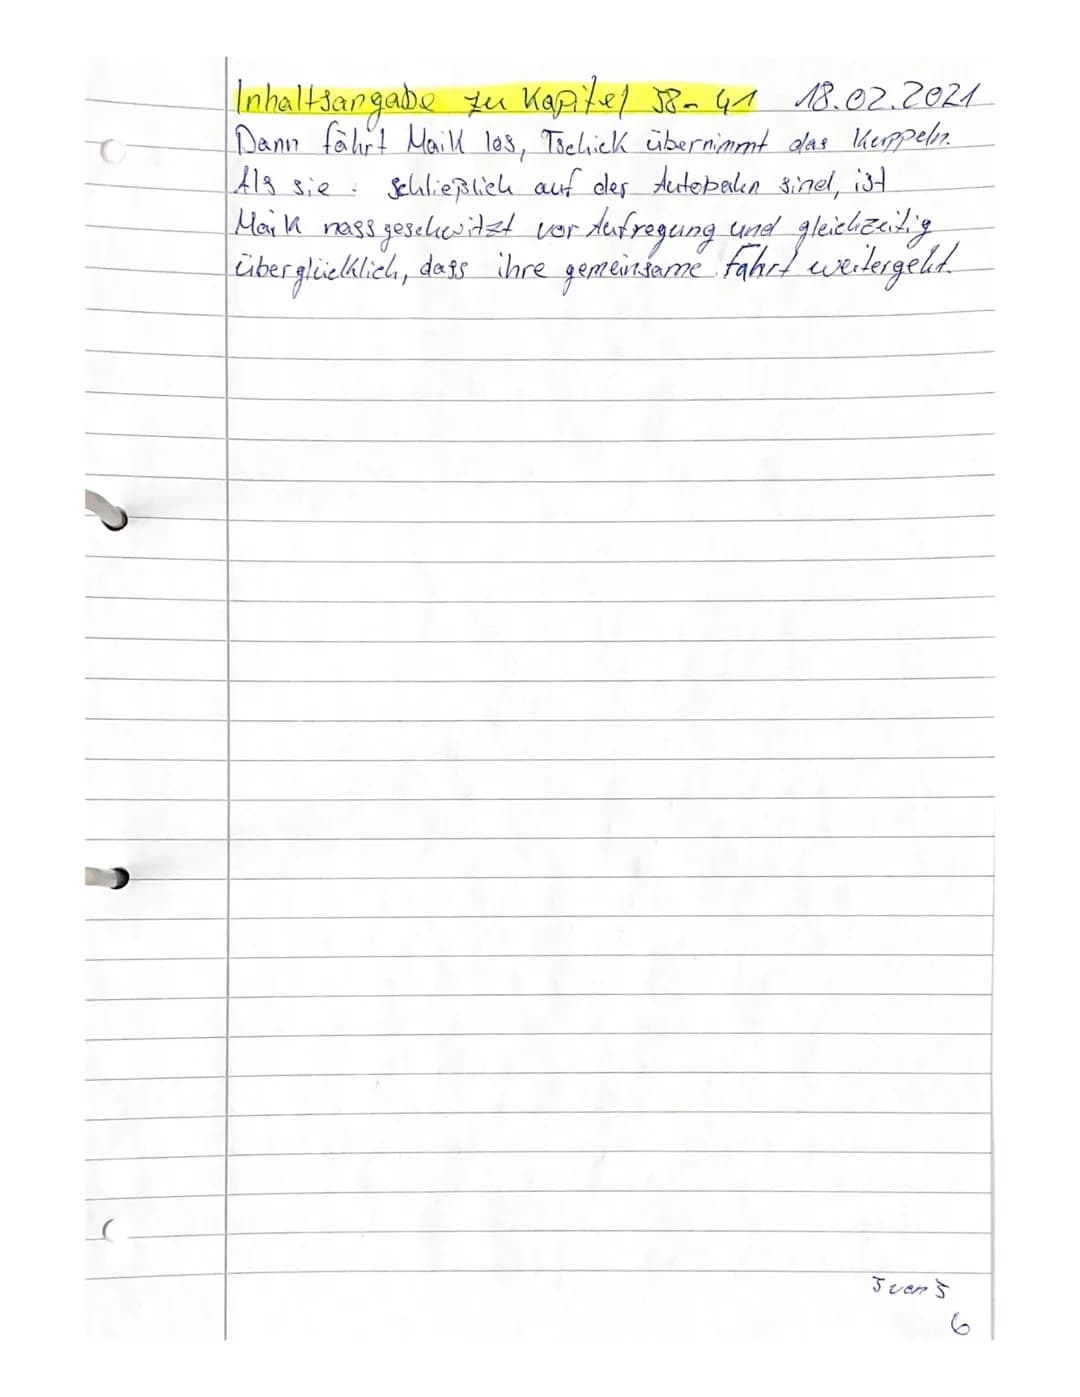 Inhaltsangabe zu Kapitel 38-41 18.02.2021
Dann fährt Maik los, Tschick übernimmt das Kuppeln.
Als sie schließlich auf der Autobahn sind, ist
Maik nassgeschwitzt vor Aufregung und gleichzeitig
überglücklich, dass ihre gemeinsame Fahrt weitergeht.
5 von 5
6